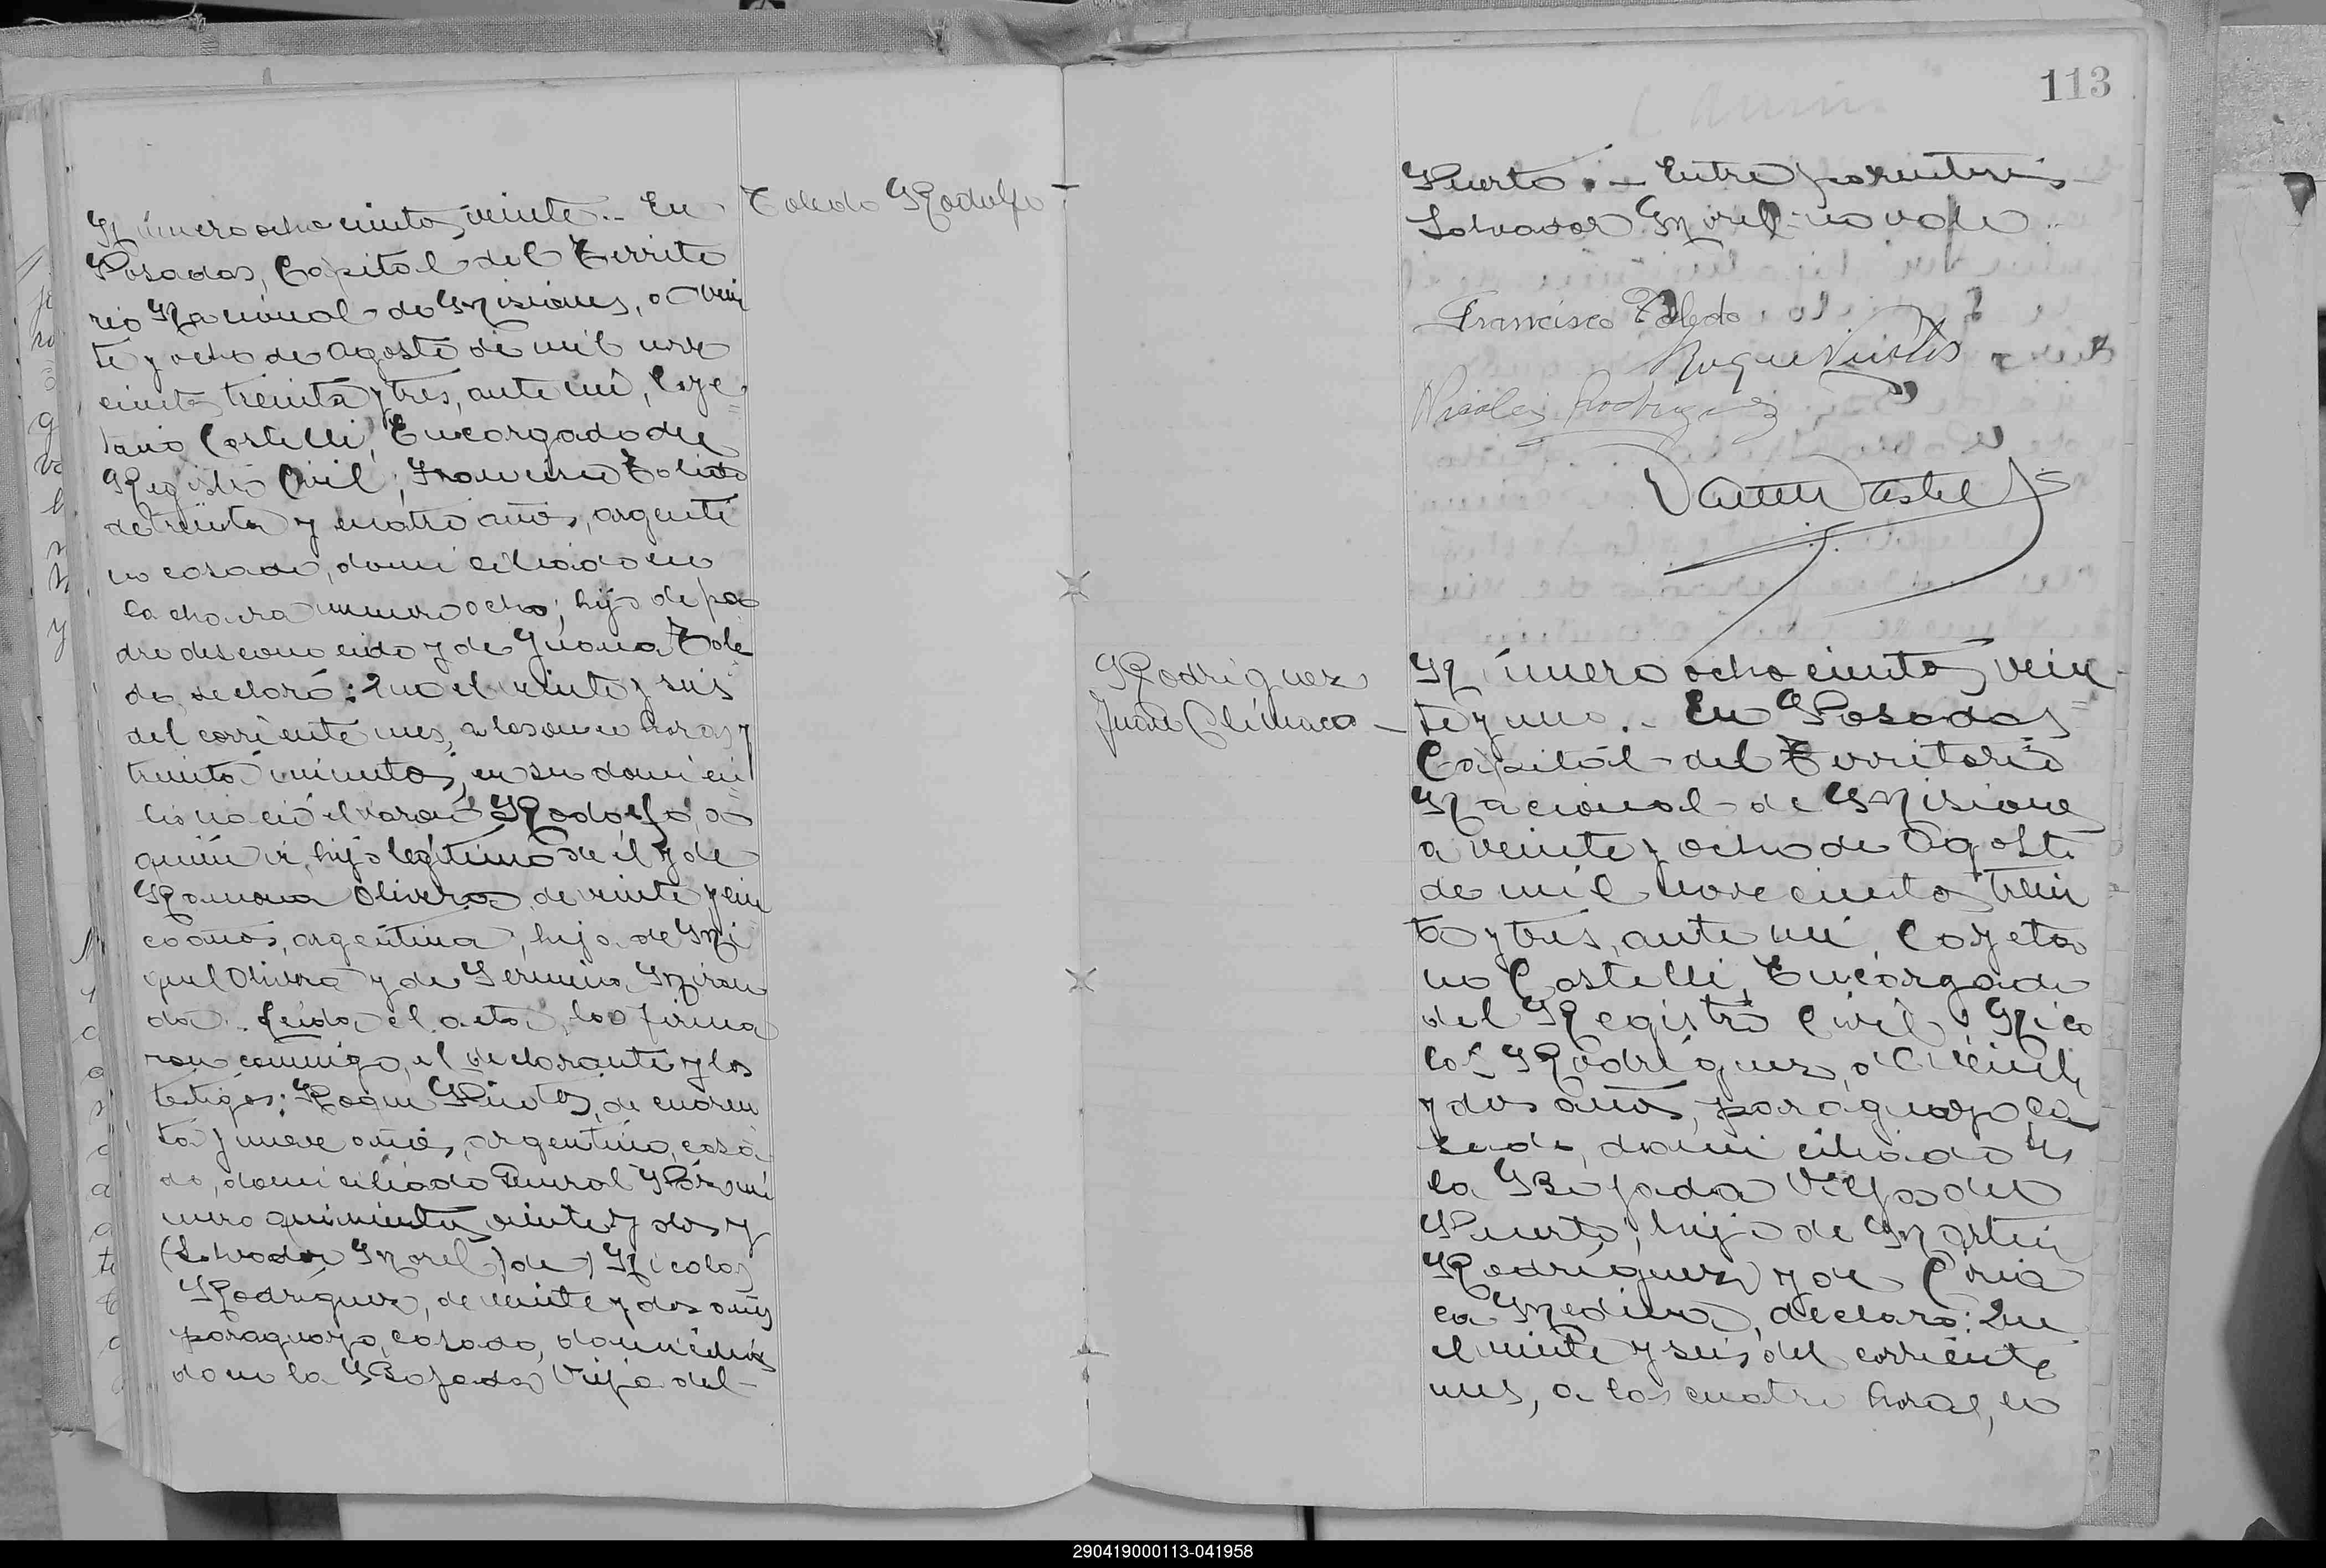 Toledo Rodolfo
Número ochocientos veinte.- En
Posadas, Capital del Territo
rio Nacional de Misiones, a vein
te y ocho de Agosto de mil nove
cientos treinta y tres, ante mí, Caye
tano Castelli, Encargado del
Registro Civil, Francisco Toledo
de treinta y cuatro años, argenti
no casado, domiciliado en
la chacra numero ocho; hijo de pa
dre desconocido y de Juana Tole
do, declaró: Que el veinte y seis
del corriente mes, a las once horas y
treinta minutos, en su domici
lio nació el varon Rodolfo, a
quien vi, hijo legítimo de él y de
Ramona Olivera de veinte y cin
co años, argentina, hija de Mi
guel Olivera y de Germina Miran
da.. Leída el acta, la firma
ron conmigo, el declarante y los
testigos: Roque Piñot de cuaren
ta y nueve años, argentino, casa
do, domiciliado Rural Póz nú
mero quinientos veinte y dos y
(Salvador Morel) de) Nicolas
Rodríguez, de veinte y dos años
paraguayo, casado, domicilia
do en la Bajada Vieja del
113
Puerto.- Entre parentesis
Salvador Morel- no vale..
Francisco Toledo
Roque
Nicolas Rodriguez
Rodríguez
Juan Clímaco
Número ochocientos vein
te y uno.- En Posadas
Capital del Territorio
Nacional de Misiones
a veinte y ocho de Agosto
de mil novecientos trein
ta y tres, ante mí, Cayeta
no Castelli, Encargado
del Registro Civil, Nico
las Rodríguez, de veinte
y dos años, paraguayo, ca
sado, domiciliado en
la Bajada Vieja del
Puerto; hijo de Martin
Rodríguez y de Ciria
ca Medina, declaró: Que
el veinte y seis del corriente
mes, a las cuatro horas, en
290419000113-041958